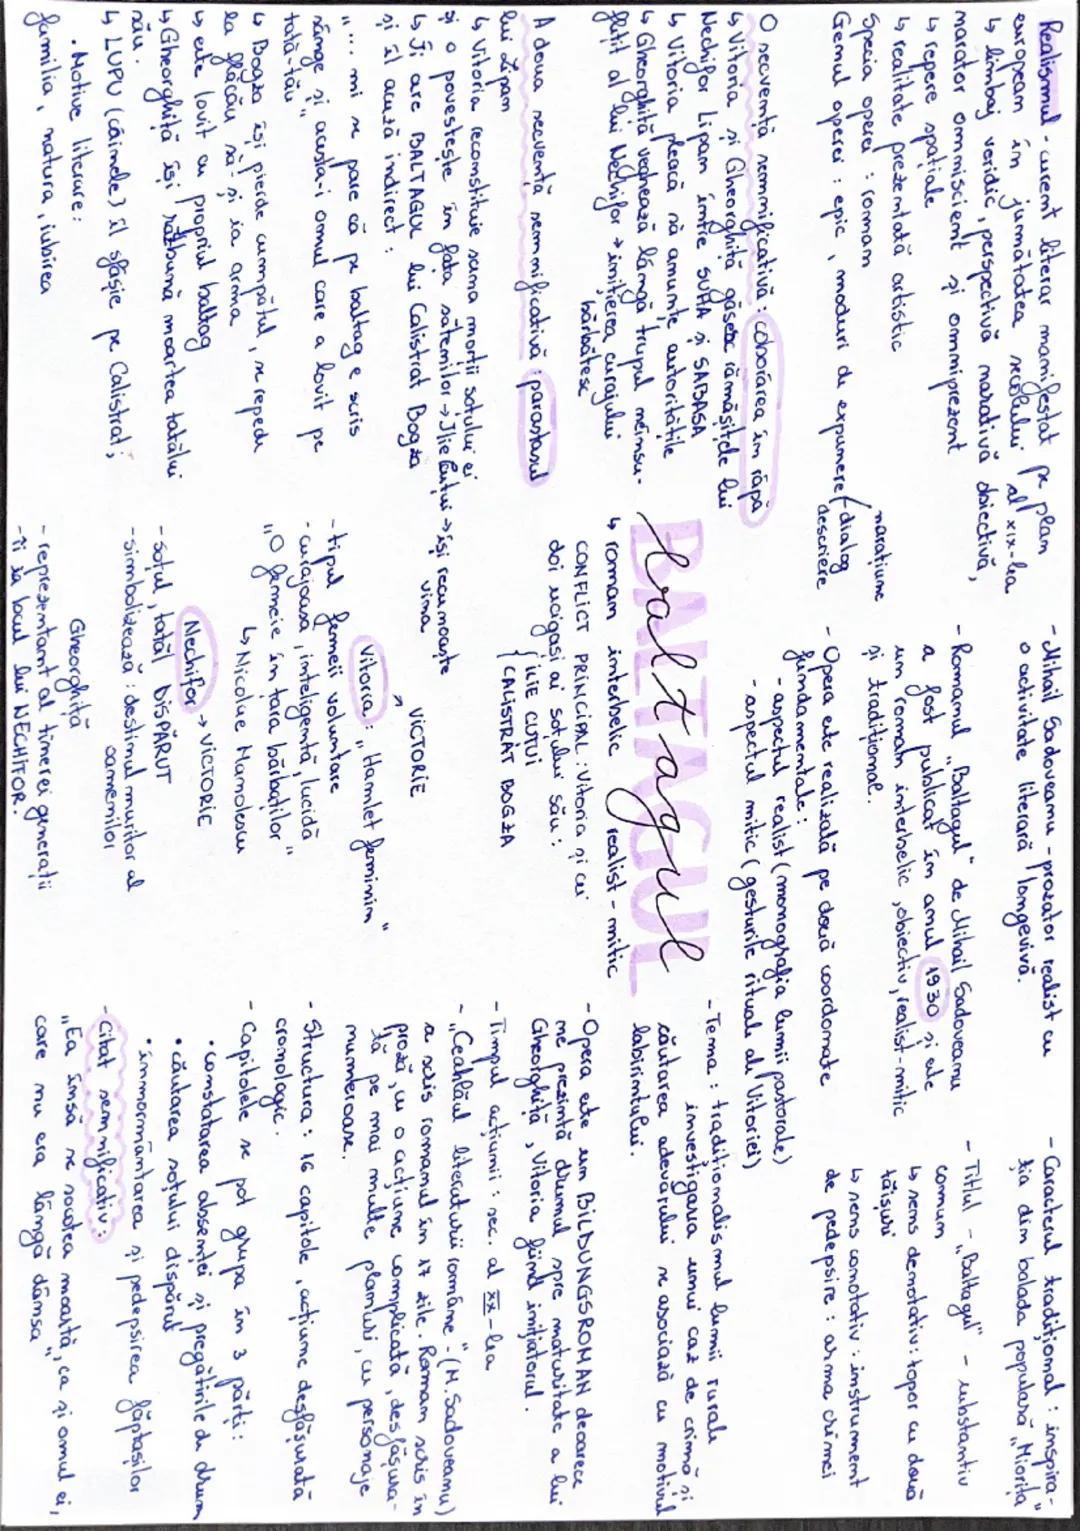 Realismul - curent literar manifestat pe plan
european în jumătatea secolului al XIX-lea
↳ limbaj veridic, perspectivă narativă obiectivă,
narator omniscient și omniprezent
↳ repere spațiale
↳ realitate prezentată artistic
Specia operei: roman
Genul operei: epic, moduri de expunere
narațiune
dialog
descriere
O secvență semnificativă: coborârea în râpă
↳ Vitoria și Gheorghiță găsesc rămășițele lui
Nechifor Lipan între SUHA și SABASA
↳ Vitoria pleacă să anunțe autoritățile
↳ Gheorghiță veghează lângă trupul neînsu-
flețit al lui Nechifor → inițierea curajului
bărbătesc
A doua secvență semnificativă: parastasul
lui Lipan
↳ Vitoria reconstituie scena morții soțului ei
și o povestește în fața sătenilor → Ilie Cuțui → își recunoaște
vina
↳ Ți are BALTAGUL lui Calistrat Bogza
și îl acuză indirect:
"... mi se pare că pe baltag e scris
sânge și acesta-i omul care a lovit pe
tată-tău"
↳ Bogza își pierde cumpătul, se repede
la flăcău să-și ia arma
↳ este lovit cu propriul baltag
↳ Gheorghiță își răzbună moartea tatălui
său.
↳ LUPU (câinele) îl sfâșie pe Calistrat;
• Motive literare:
familia, natura, iubirea
- Mihail Sadoveanu - prozator realist cu
o activitate literară longevivă.
- Romanul "Baltagul" de Mihail Sadoveanu
a fost publicat în anul 1930 și este
un roman interbelic, obiectiv, realist-mitic
și tradițional.
- Opera este realizată pe două coordonate
fundamentale:
- aspectul realist (monografia lumii pastorale)
- aspectul mitic (gesturile rituale ale Vitoriei)
BALTAGUL
baltagul
↳ roman interbelic realist-mitic
CONFLICT PRINCIPAL: Vitoria și cei
doi ucigași ai soțului său:
ILIE CUȚUI
CALISTRAT BOGZA
VICTORIE
Vitoria: "Hamlet feminin"
- tipul femeii voluntare
- curajoasă, inteligentă, lucidă
"O femeie în țara bărbaților"
↳ Nicolae Manolescu
Nechifor → VICTORIE
- soțul, tatăl DISPĂRUT
- simbolizează: destinul muritor al
oamenilor
Gheorghiță
- reprezentant al tinerei generații
- îi ia locul lui NECHIFOR.
- Caracterul tradițional: inspira-
ția din balada populară "Miorița"
- Titlul - "Baltagul" - substantiv
comun
↳ sens denotativ: topor cu două
tăișuri
↳ sens conotativ: instrument
de pedepsire: arma crimei
- Tema: tradiționalismul lumii rurale
investigarea unui caz de crimă și
căutarea adevărului se asociază cu motivul
labirintului.
- Opera este un BILDUNGSROMAN deoarece
ne prezintă drumul spre maturitate a lui
Gheorghiță, Vitoria fiind inițiatorul.
- Timpul acțiunii: sec. al XX-lea
- "Ceahlăul literaturii române" - (M. Sadoveanu)
a scris romanul în 17 zile. Roman scris în
proză, cu o acțiune complicată, desfășura-
tă pe mai multe planuri, cu personaje
numeroase.
- Structura: 16 capitole, acțiune desfășurată
cronologic.
- Capitolele se pot grupa în 3 părți:
• constatarea absenței și pregătirile de drum
• căutarea soțului dispărut
• înmormântarea și pedepsirea făptașilor
- Citat semnificativ:
"Ea însă se socotea moartă, ca și omul ei,
care nu era lângă dânsa"